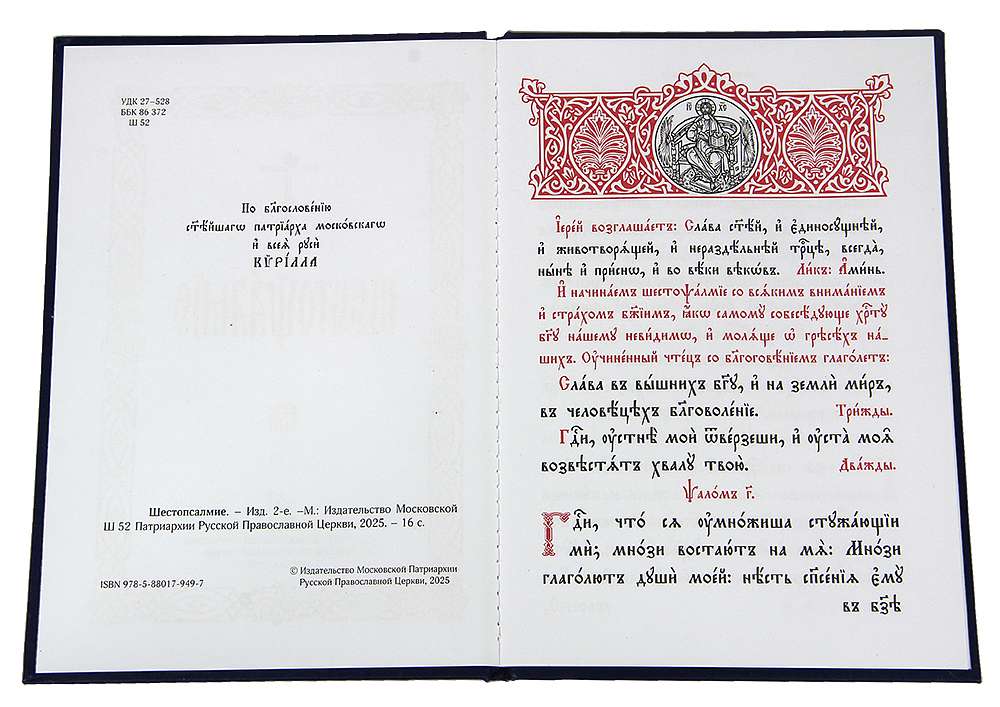 УДК 27–528
ББК 86 372
Ш 52
По бл҃гослове́нїю
ст҃ѣ́йшагѡ патрїа́рха моско́вскагѡ
и҆ всеѧ̀ рꙋсѝ
КѴРІ́ЛЛА
Шестопсалмие. – Изд. 2-е. –М.: Издательство Московской
Ш 52 Патриархии Русской Православной Церкви, 2025. – 16 с.
© Издательство Московской Патриархии
Русской Православной Церкви, 2025
ISBN 978-5-88017-949-7
І҆С ХС
І҆ере́й возглаша́етъ: Сла́ва ст҃ѣ́й, и҆ є҆диносꙋ́щнѣй,
и҆ животворѧ́щей, и҆ нераздѣ́льнѣй трⷪ҇цѣ, всегда̀,
ны́нѣ и҆ при́снѡ, и҆ во вѣ́ки вѣкѡ́въ. Ли́къ: А҆ми́нь.
И҆ начина́емъ шестоѱа́лмїе со всѧ́кимъ внима́нїемъ
и҆ стра́хомъ бж҃їимъ, ꙗ҆́кѡ самомꙋ̀ собесѣ́дꙋюще хрⷭ҇тꙋ̀
бг҃ꙋ на́шемꙋ неви́димѡ, и҆ молѧ́ще ѡ҆ грѣсѣ́хъ на_
шихъ. Оу҆чине́нный чте́цъ со бл҃гоговѣ́нїемъ глаго́летъ:
Сла́ва въ вы́шнихъ бг҃ꙋ, и҆ на землѝ ми́ръ,
въ человѣ́цѣхъ бл҃говоле́нїе. Три́жды.
Гдⷭ҇и, ᲂу҆стнѣ̀ моѝ ѿве́рзеши, и҆ ᲂу҆ста̀ моѧ̑
возвѣстѧ́тъ хвалꙋ̀ твою̀. Два́жды.
Ѱало́мъ г҃.
Гдⷭ҇и, что́ сѧ ᲂу҆мно́жиша стꙋжа́ющїи
мѝ; мно́зи востаю́тъ на мѧ̀: Мно́зи
глаго́лютъ дꙋшѝ мое́й: нѣ́сть сп҃се́нїѧ є҆мꙋ̀
въ бз҃ѣ